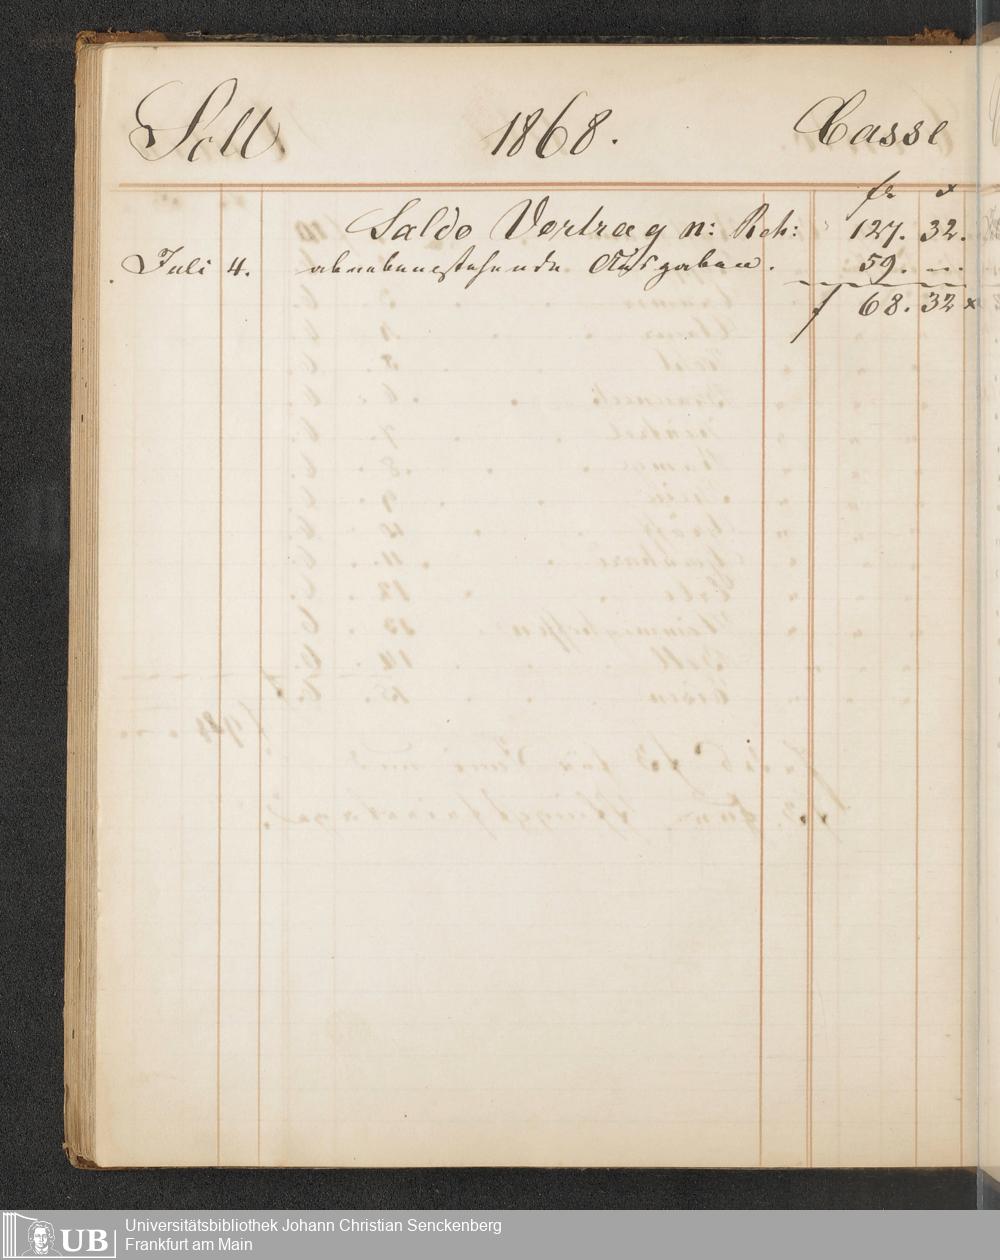 Soll 1868. Casse
fr x
Saldo Vortrag n: Rch: 127. 32.
Juli 4. abnebenstehende Ausgaben. 59. —
f 68. 32 x
UB Universitätsbibliothek Johann Christian Senckenberg
Frankfurt am Main